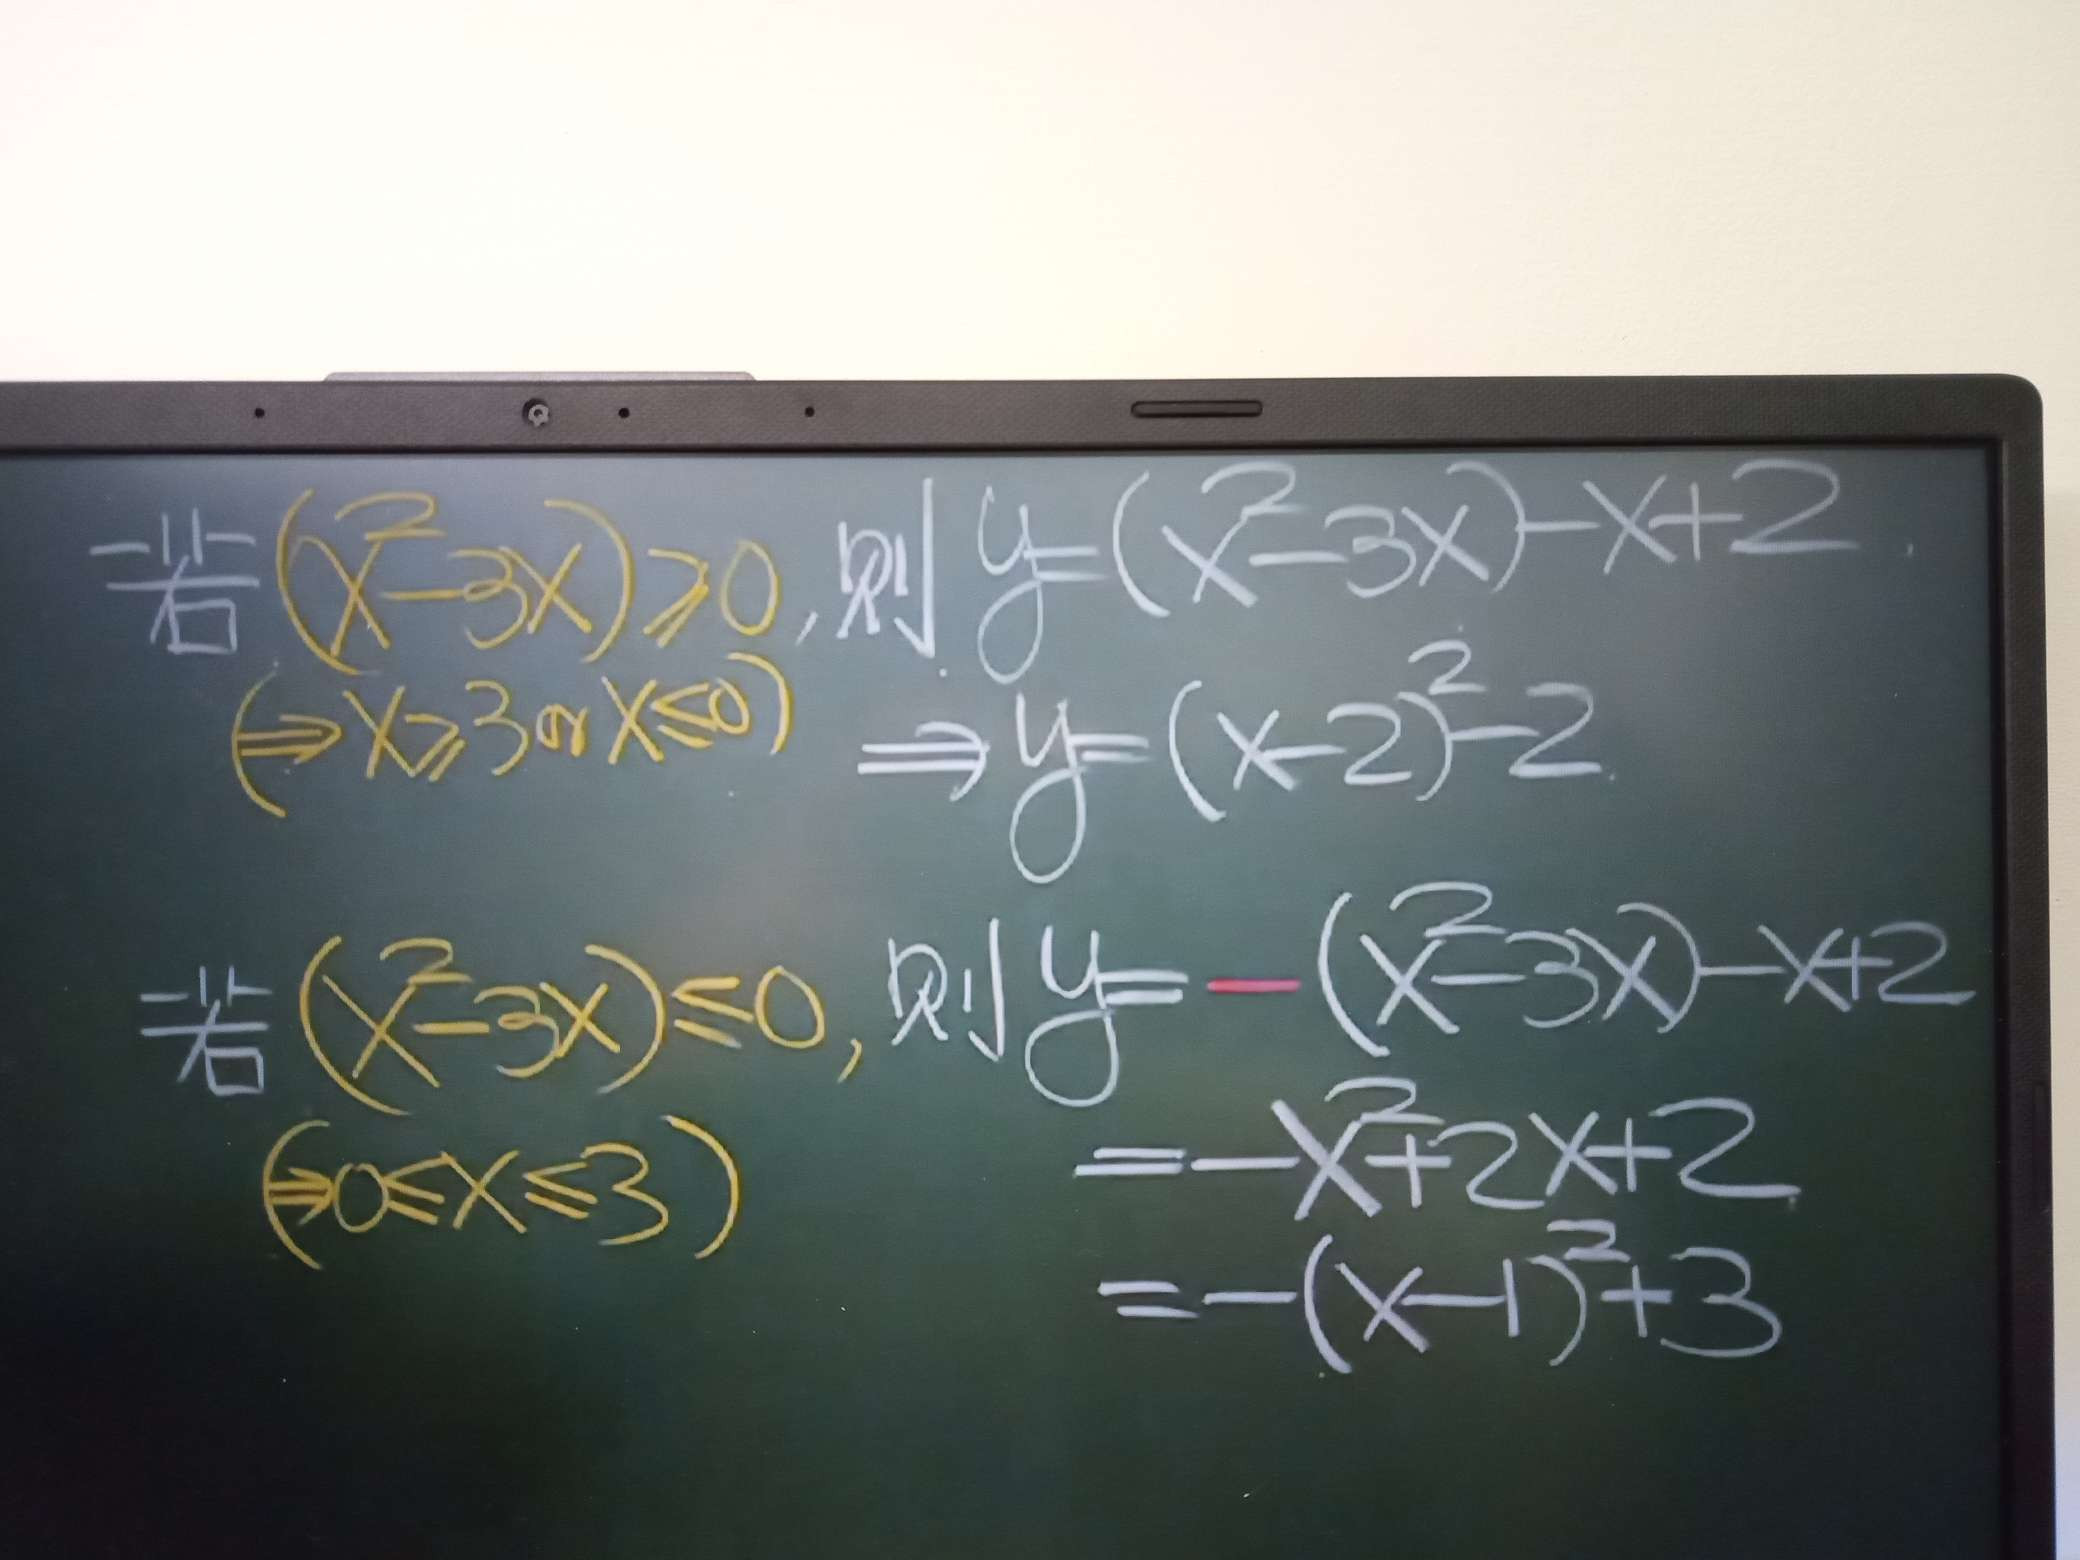 若(x²-3x)≥0, 则 y=(x²-3x)-x+2
(⇒x≥3 or x≤0) ⇒y=(x-2)²-2
若(x²-3x)≤0, 则 y=-(x²-3x)-x+2
(⇒0≤x≤3) =-x²+2x+2
=-(x-1)²+3